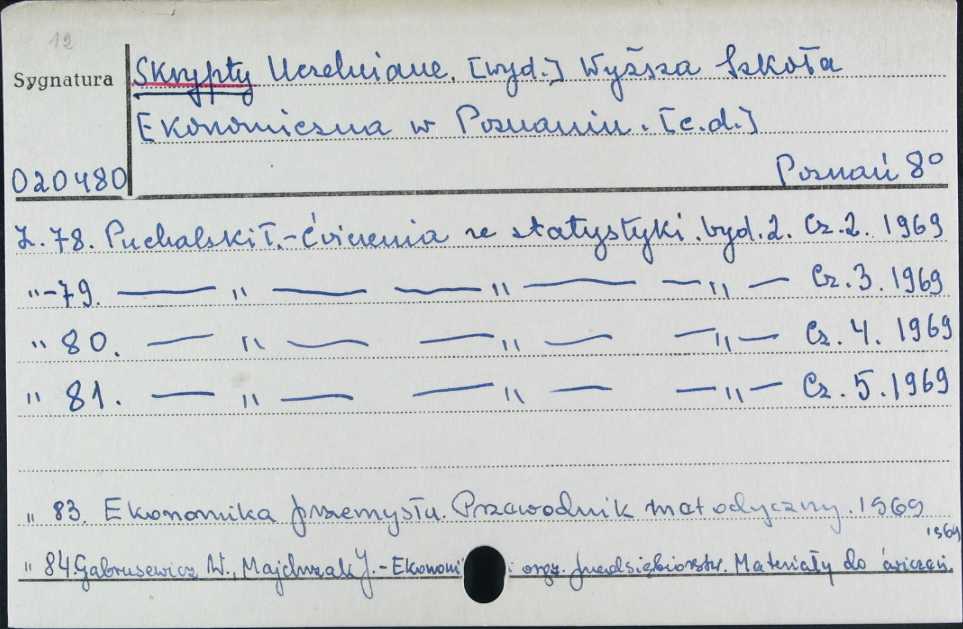 12
Sygnatura Skrypty Uczelniane. [wyd.] Wyższa Szkoła
Ekonomiczna w Poznaniu. [c.d.]
020480 Poznań 8°
Z. 78. Puchalski T. - Ćwiczenia ze statystyki. Wyd. 2. Cz. 2. 1969
"-79. — " — — " — — " — Cz. 3. 1969
" 80. — " — — " — — " — Cz. 4. 1969
" 81. — " — — " — — " — Cz. 5. 1969
" 83. Ekonomika przemysłu. Przewodnik metodyczny. 1969
1969
" 84. Gabrusewicz W., Majchrzak J. - Ekonomi i org. przedsiębiorstw. Materiały do ćwiczeń.